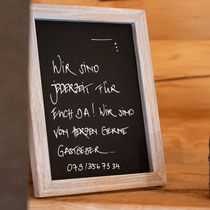 WIR SIND
JEDERZEIT FÜR
EUCH DA! WIR SIND
VON HERZEN GERNE
GASTGEBER...
079/356 73 34